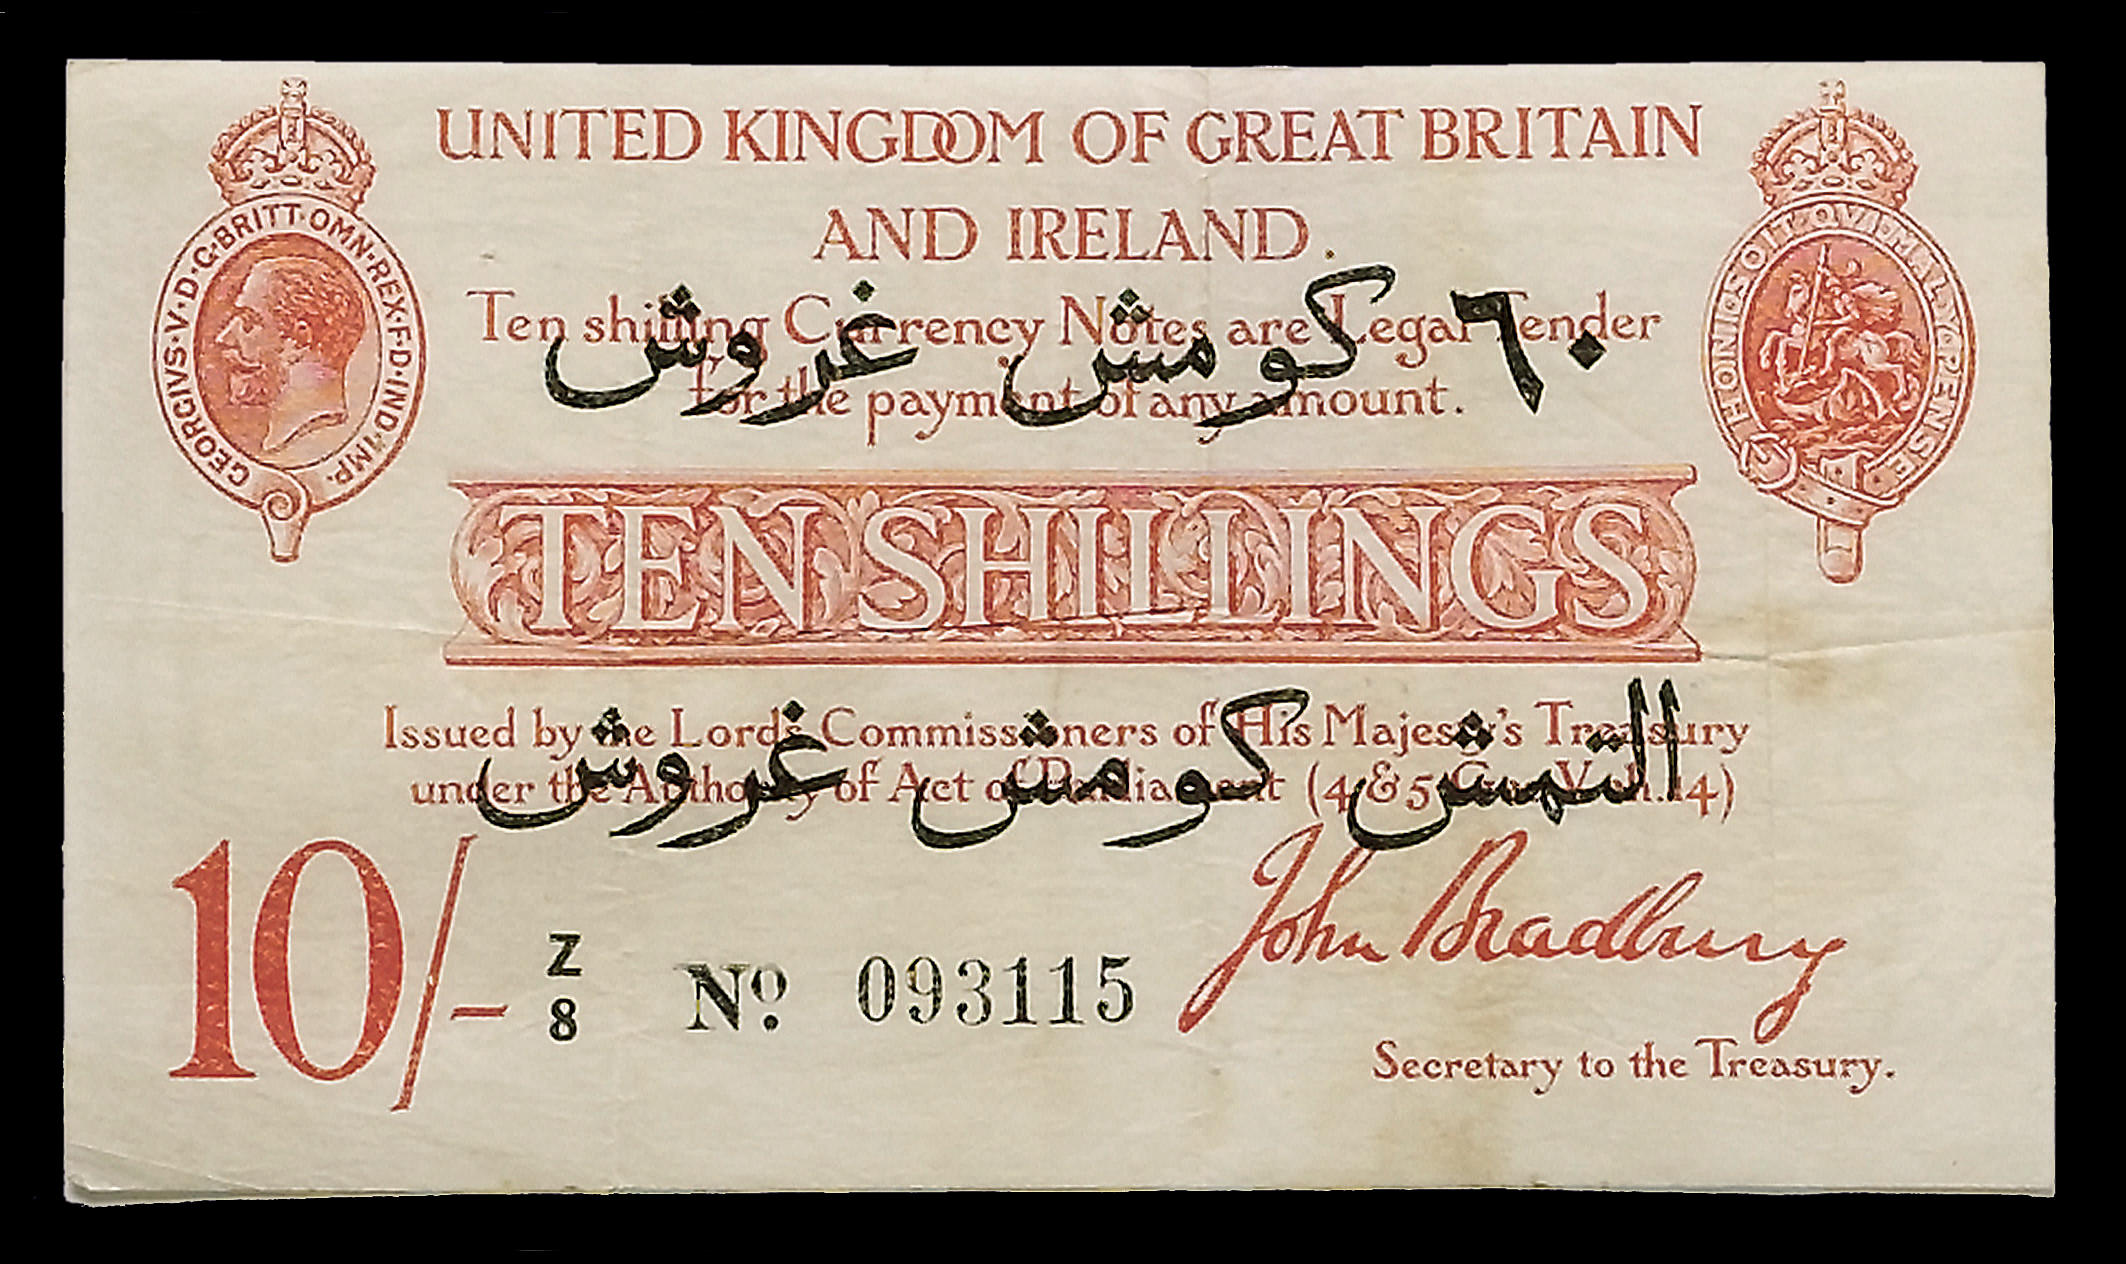 UNITED KINGDOM OF GREAT BRITAIN
AND IRELAND.
GEORGIVS·V·D·G·BRITT·OMN·REX·F·D·IND·IMP·
HONI·SOIT·QVI·MAL·Y·PENSE
Ten shilling Currency Notes are Legal Tender
for the payment of any amount.
٦٠ كومش غروش
TEN SHILLINGS
Issued by the Lords Commissioners of His Majesty's Treasury
under the Authority of Act of Parliament (4 & 5 Geo. V. ch. 14)
التمش كومش غروش
10/-
Z
8
No. 093115
John Bradbury
Secretary to the Treasury.